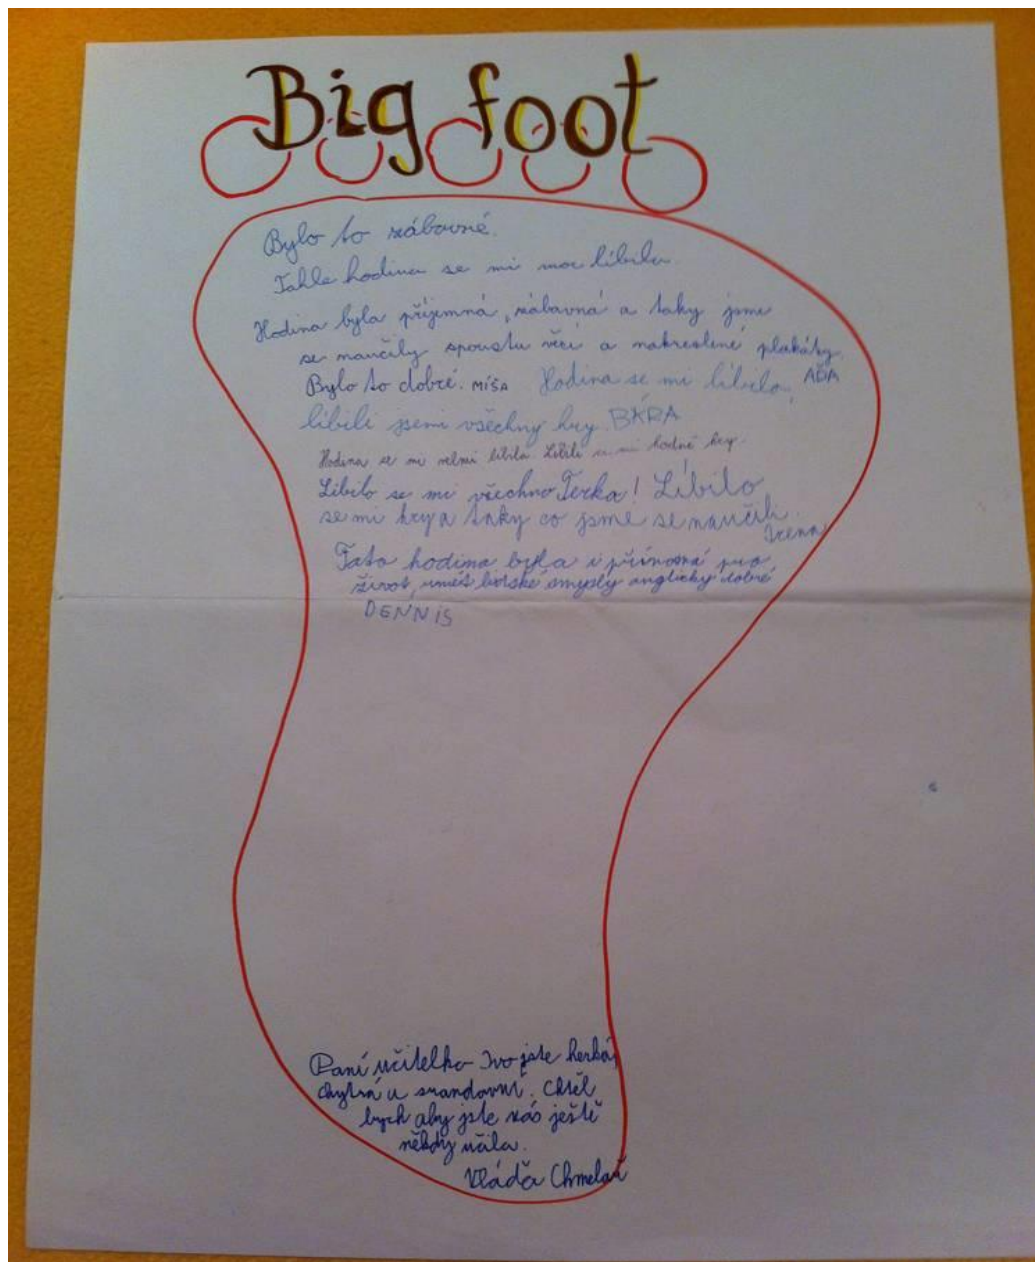 Big foot
Bylo to zábavné.
Tahle hodina se mi moc líbila.
Hodina byla příjemná, zábavná a taky jsme
se naučily spoustu věcí a nakreslené plakáty.
Bylo to dobré. MÍŠA Hodina se mi líbila, AĎA
líbili jsemi všechny hry. BÁRA
Hodina se mi velmi líbila. Líbili se mi hodně hry.
Líbilo se mi všechno Terka! Líbilo
se mi hry a taky co jsme se naučili.
Irena
Tato hodina byla i přínosná pro
život, umět lidské smysly anglicky dobré
DENNIS
Paní učitelko Ivo jste hezká,
chytrá a srandovní. Chtěl
bych aby jste nás ještě
někdy učila.
Vláďa Chmelař